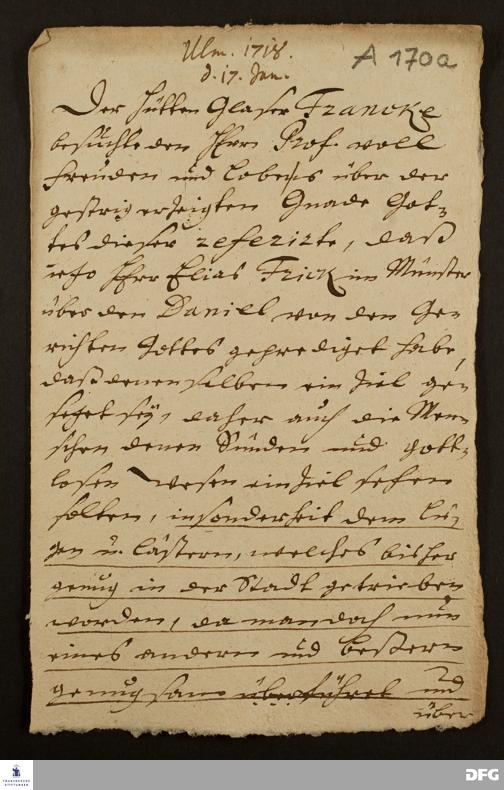 Ulm. 1718.
d. 17. Jan.
A 170a
Der Hütten Glaser Francke
besuchte den Herrn Prof. voll
Freuden und Lobens über der
gestrig erzeigten Gnade Got-
tes dieser referirte, daß
Herr Elias Frick im Münster
über den Daniel von den Ge-
richten Gottes geprediget habe,
daß denenselben ein Ziel ge-
setzet sey, daher auch die Men-
schen denen Sünden und gott-
losen Wesen ein Ziel setzen
solten, insonderheit dem Lü-
gen u. Lästern, welches bisher
genug in der Stadt getrieben
worden, da man doch nun
eines andern und bessern
genugsam überführet und
über
FRANCKESCHE STIFTUNGEN
DFG